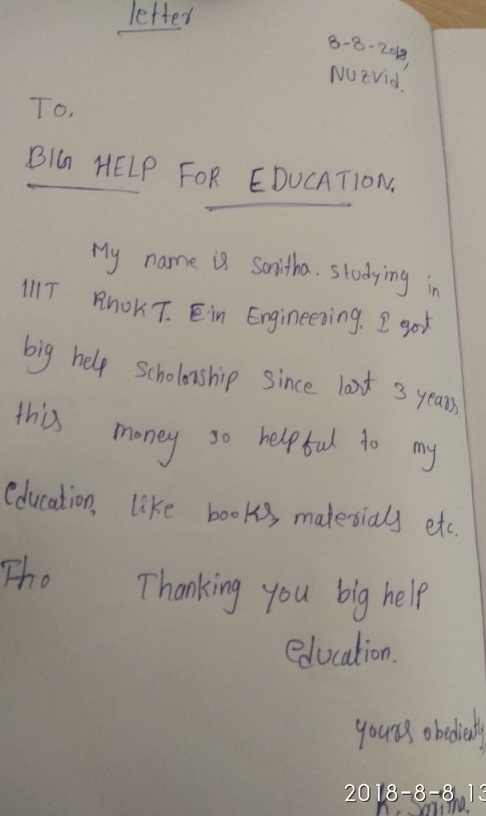 letter
8-8-2018,
NUZVid.
To,
BIG HELP FOR EDUCATION.
My name is Saritha. Studying in
IIIT RhUKT. E in Engineering. I got
big help Scholarship Since last 3 years
this money so helpful to my
education, like books, materials etc.
Tho Thanking you big help
education.
yours obediently,
K. Saritha.
2018-8-8 13